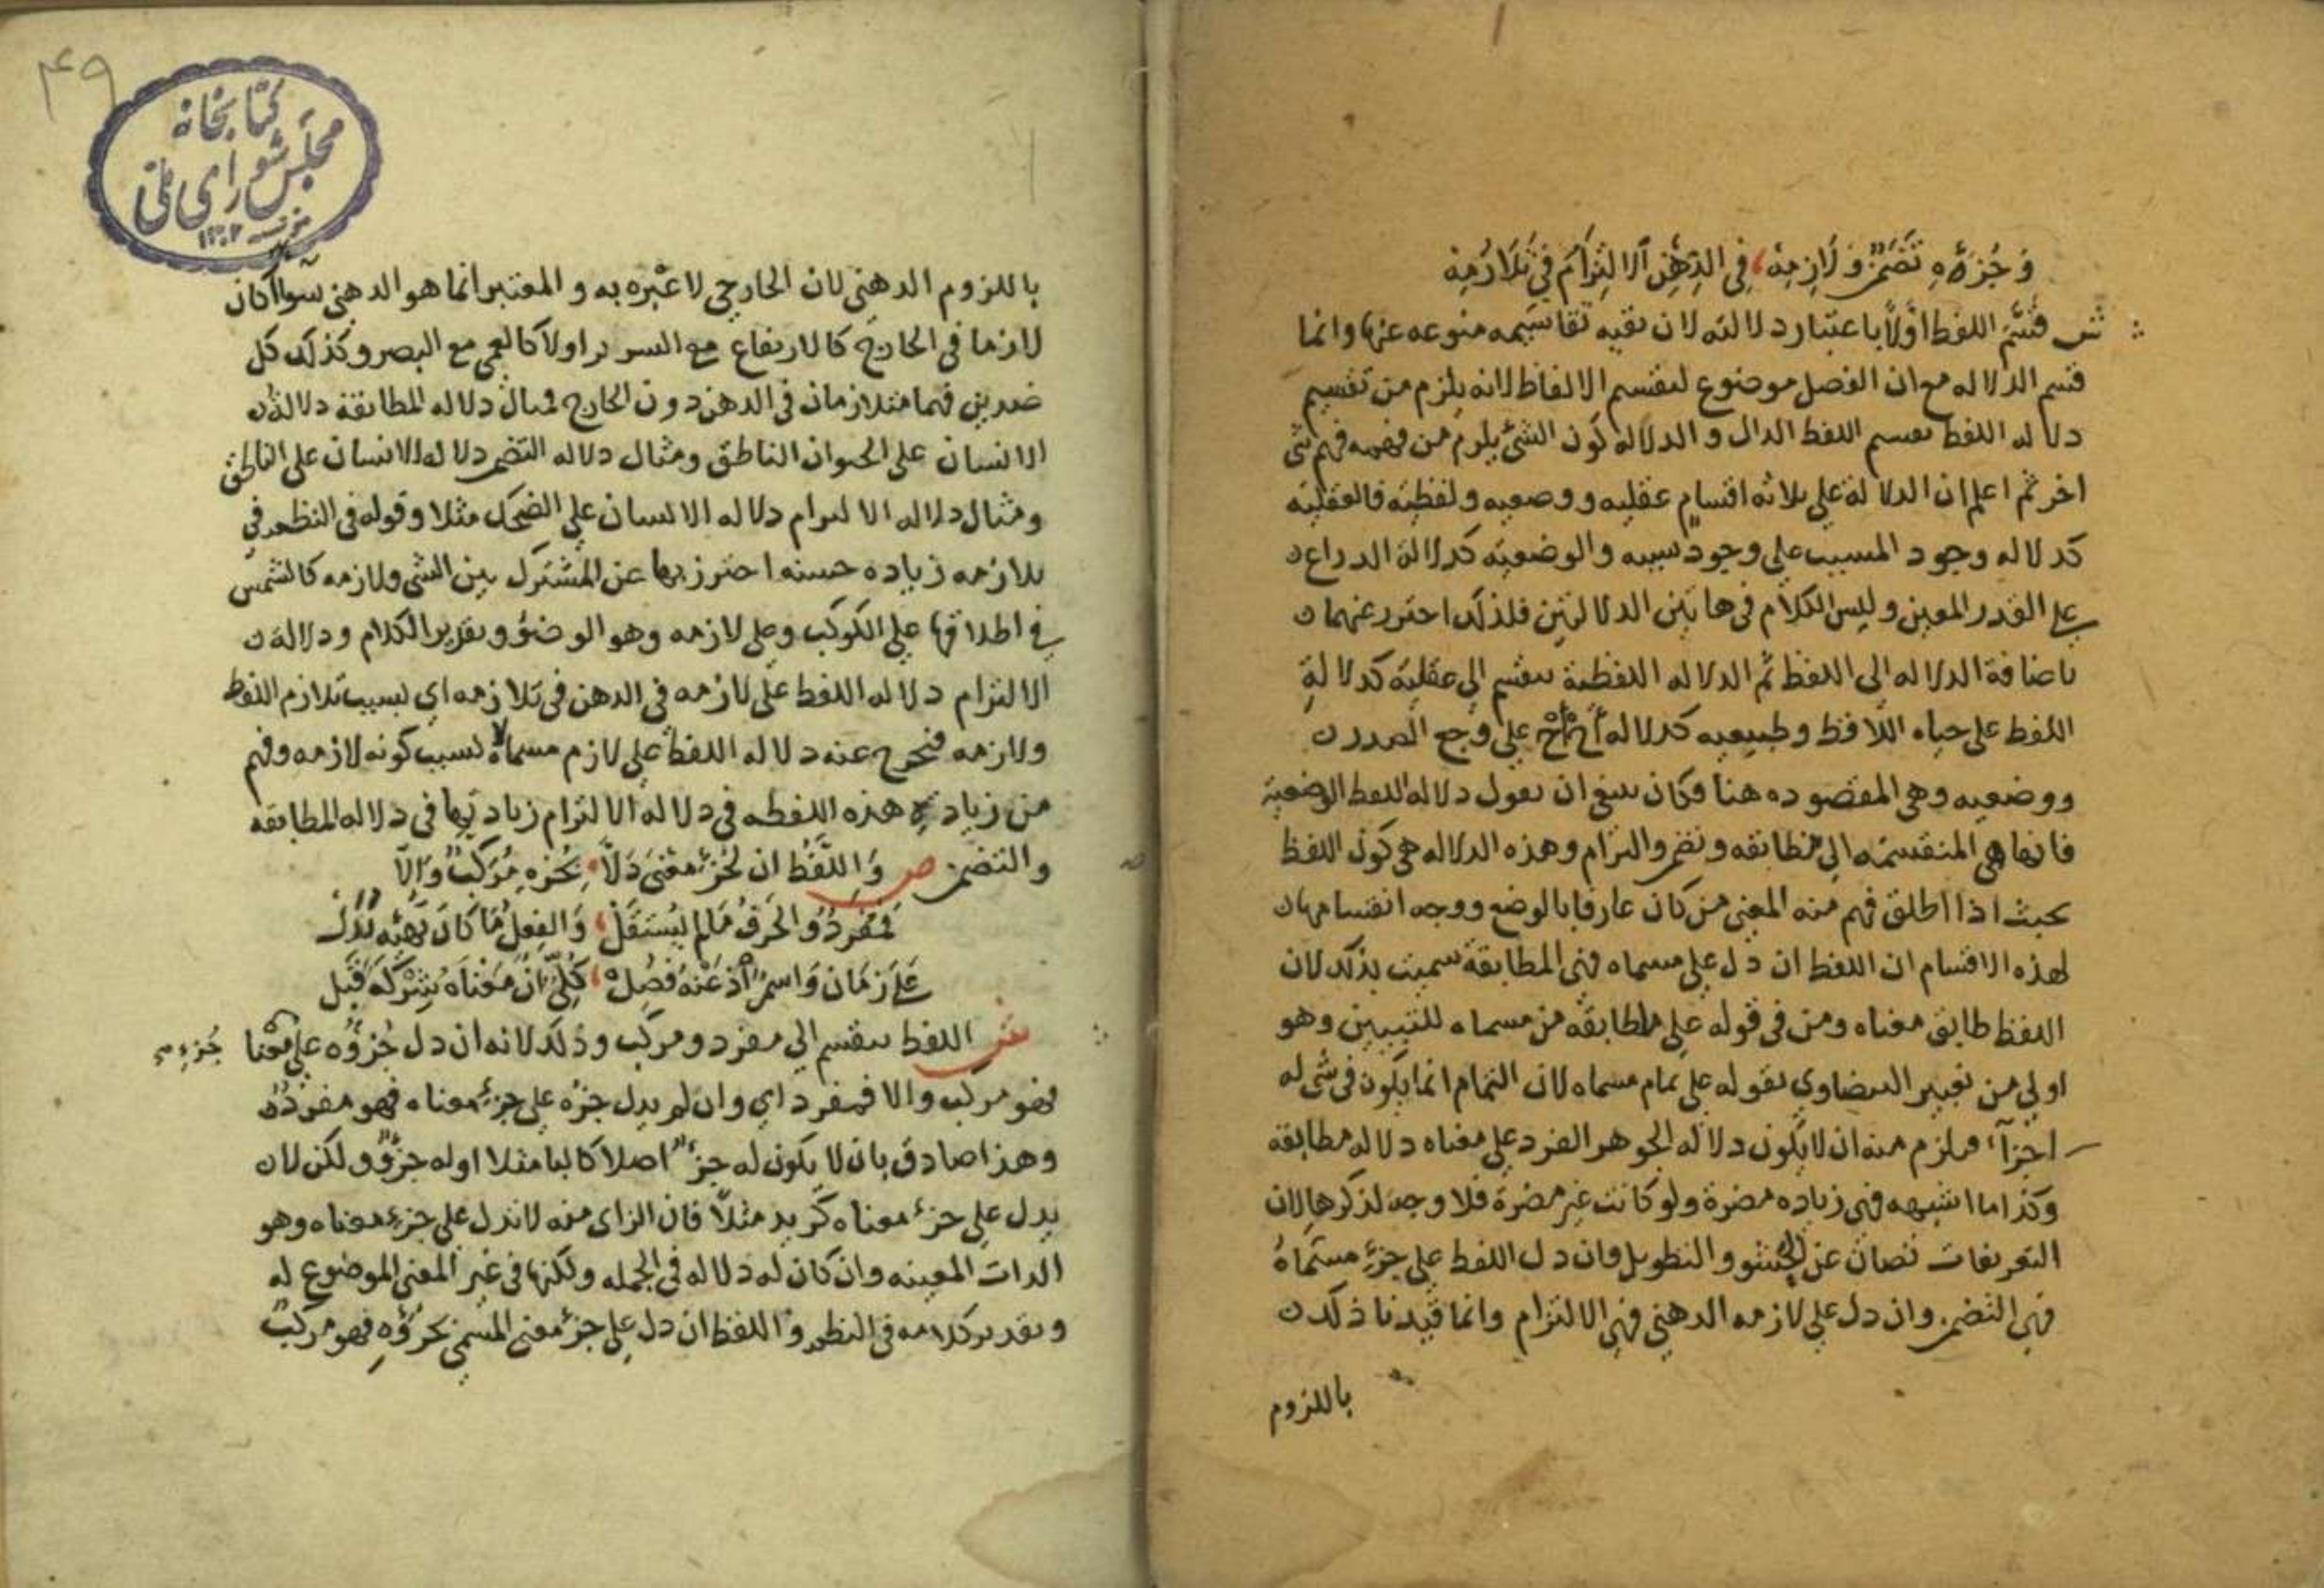 وَجُزءِهِ تَضَمُّنٌ وَلَازِمِهْ، فِي الذِهْنِ الالتِزَامُ فِي تَلَازُمِهِ
ش قسَّم اللفظ اولاً باعتبار دلالته لان بقيه تقاسيمه متوعه عنها وانما
قسم الدلاله مع ان الفصل موضوع لتقسيم الالفاظ لانه يلزم من تقسيم
دلاله اللفظ تقسيم اللفظ الدال والدلاله كون الشئ يلزم من فهمه فهم شئ
اخر ثم اعلم ان الدلالة على ثلاثه اقسام عقليه ووضعيه ولفظيه فالعقليه
كدلاله وجود المسبب على وجود سببه والوضعيه كدلالة الدراع
على القدر المعين وليس الكلام في هاتين الدلالتين فلذلك احترز عنهما
باضافة الدلاله الى اللفظ ثم الدلاله اللفظية تنقسم الى عقلية كدلالة
اللفظ على حياه اللافظ وطبيعيه كدلاله أخ أخ على وجع الصدر
ووضعيه وهي المقصوده هنا وكان ينبغي ان يقول دلاله اللفظ الوضعية
فانها هي المنقسمه الى مطابقه وتضمن والتزام وهذه الدلاله هي كون اللفظ
بحيث اذا اطلق فهم منه المعنى من كان عارفا بالوضع ووجه انقسامها
لهذه الاقسام ان اللفظ ان دل على مسماه فهي المطابقة سميت بذلك لان
اللفظ طابق معناه ومن في قوله على ماطابقه من مسماه للتبيين وهو
اولى من تعبير البيضاوي بقوله على تمام مسماه لان التمام انما يكون في شي له
اجزآء فيلزم منه ان لا يكون دلاله الجوهر الفرد على معناه دلاله مطابقه
وكذا ما اشبهه فهي زياده مضرة ولو كانت غير مضرة فلا وجه لذكرها لان
التعريفات تصان عن الحشو والتطويل وان دل اللفظ على جزءِ مسماهُ
فهي التضمن وان دل على لازمه الدهني فهي الالتزام وانما قيدنا ذلك
باللزوم
۴۹
كتابخانه
مجلس شوراى ملى
۱۳۰۲
باللزوم الدهني لان الخارجي لا عبره به والمعتبر انما هو الدهني سوآ اكان
لازما في الخارج كالارتفاع مع السرير اولا كالعمى مع البصر وكذلك كل
ضدين فهما متلازمان في الدهن دون الخارج فمثال دلاله المطابقة دلالة
الانسان على الحيوان الناطق ومثال دلاله التضمن دلاله الانسان على الناطق
ومثال دلاله الالتزام دلاله الانسان على الضحك مثلا وقوله في النظم في
تلازمه زياده حسنه احترز بها عن المشترك بين الشي ولازمه كالشمس
في اطلاقها على الكوكب وعلى لازمه وهو الوضؤ وتقرير الكلام ودلالة
الالتزام دلاله اللفظ على لازمه في الدهن في تلازمه اي بسبب تلازم اللفظ
ولازمه فتخرج عنه دلاله اللفظ على لازم مسماه لا بسبب كونه لازمه وفهم
من زياده هذه اللفظه في دلاله الالتزام زيادتها في دلاله المطابقه
والتضمن ص وَاللَّفْظُ ان لجُزْءِ مَعْنًى دَلَّا، بجُزْءِهِ مُرَكَّبٌ وَاِلَّا
فَمُفرَدٌ وَالحَرفُ مَا لم يَستَقلْ، وَالفِعلُ مَا كَانَ بهَيئَه تَدُلْ
عَلَى زَمَان وَاسمٌ اِذ عَنْهُ فُصِلْ، كُلِّيٌّ انْ مَعْنَاهُ شِرْكَةً قَبِل
ش اللفظ ينقسم الى مفرد ومركب وذلك لانه ان دل جُزؤُه على معنا
جُزءِ
فهو مركب والا فمفرد اي وان لم يدل جزءه على جزءِ معناه فهو مفردٌ
وهذا صادق بان لا يكون له جزءٌ اصلا كالبا مثلا اوله جزؤٌ ولكن لا
يدل على جزء معناه كزيد مثلاً فان الزاى منه لا تدل على جزءِ معناه وهو
الدات المعينه وان كان له دلاله في الجمله ولكنها في غير المعنى الموضوع له
وتقدير كلامه في النظم واللفظ ان دل على جزء معنى المسمى بجزؤهِ فهو مركب